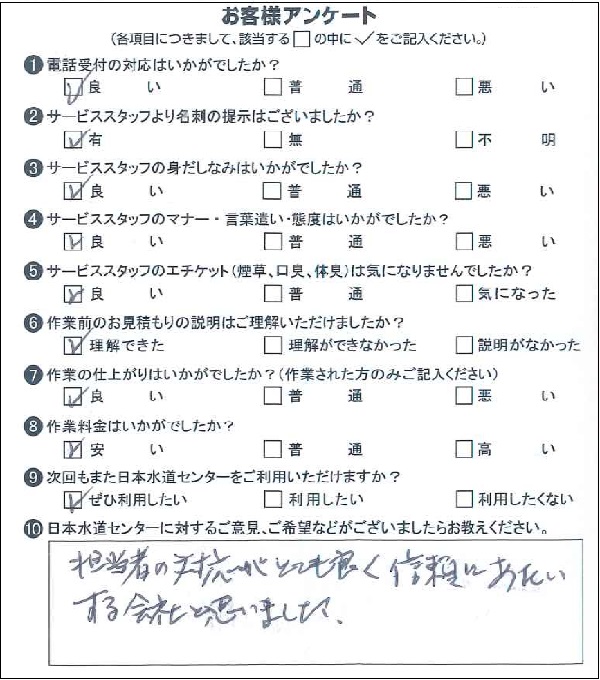 お客様アンケート
(各項目につきまして、該当する□の中に✓をご記入ください。)
❶ 電話受付の対応はいかがでしたか?
☑良い □普通 □悪い
❷ サービススタッフより名刺の提示はございましたか?
☑有 □無 □不明
❸ サービススタッフの身だしなみはいかがでしたか?
☑良い □普通 □悪い
❹ サービススタッフのマナー・言葉遣い・態度はいかがでしたか?
☑良い □普通 □悪い
❺ サービススタッフのエチケット(煙草、口臭、体臭)は気になりませんでしたか?
☑良い □普通 □気になった
❻ 作業前のお見積もりの説明はご理解いただけましたか?
☑理解できた □理解ができなかった □説明がなかった
❼ 作業の仕上がりはいかがでしたか?(作業された方のみご記入ください)
☑良い □普通 □悪い
❽ 作業料金はいかがでしたか?
☑安い □普通 □高い
❾ 次回もまた日本水道センターをご利用いただけますか?
☑ぜひ利用したい □利用したい □利用したくない
❿ 日本水道センターに対するご意見、ご希望などがございましたらお教えください。
担当者の対応がとても良く信頼にあたい
する会社と思いました。